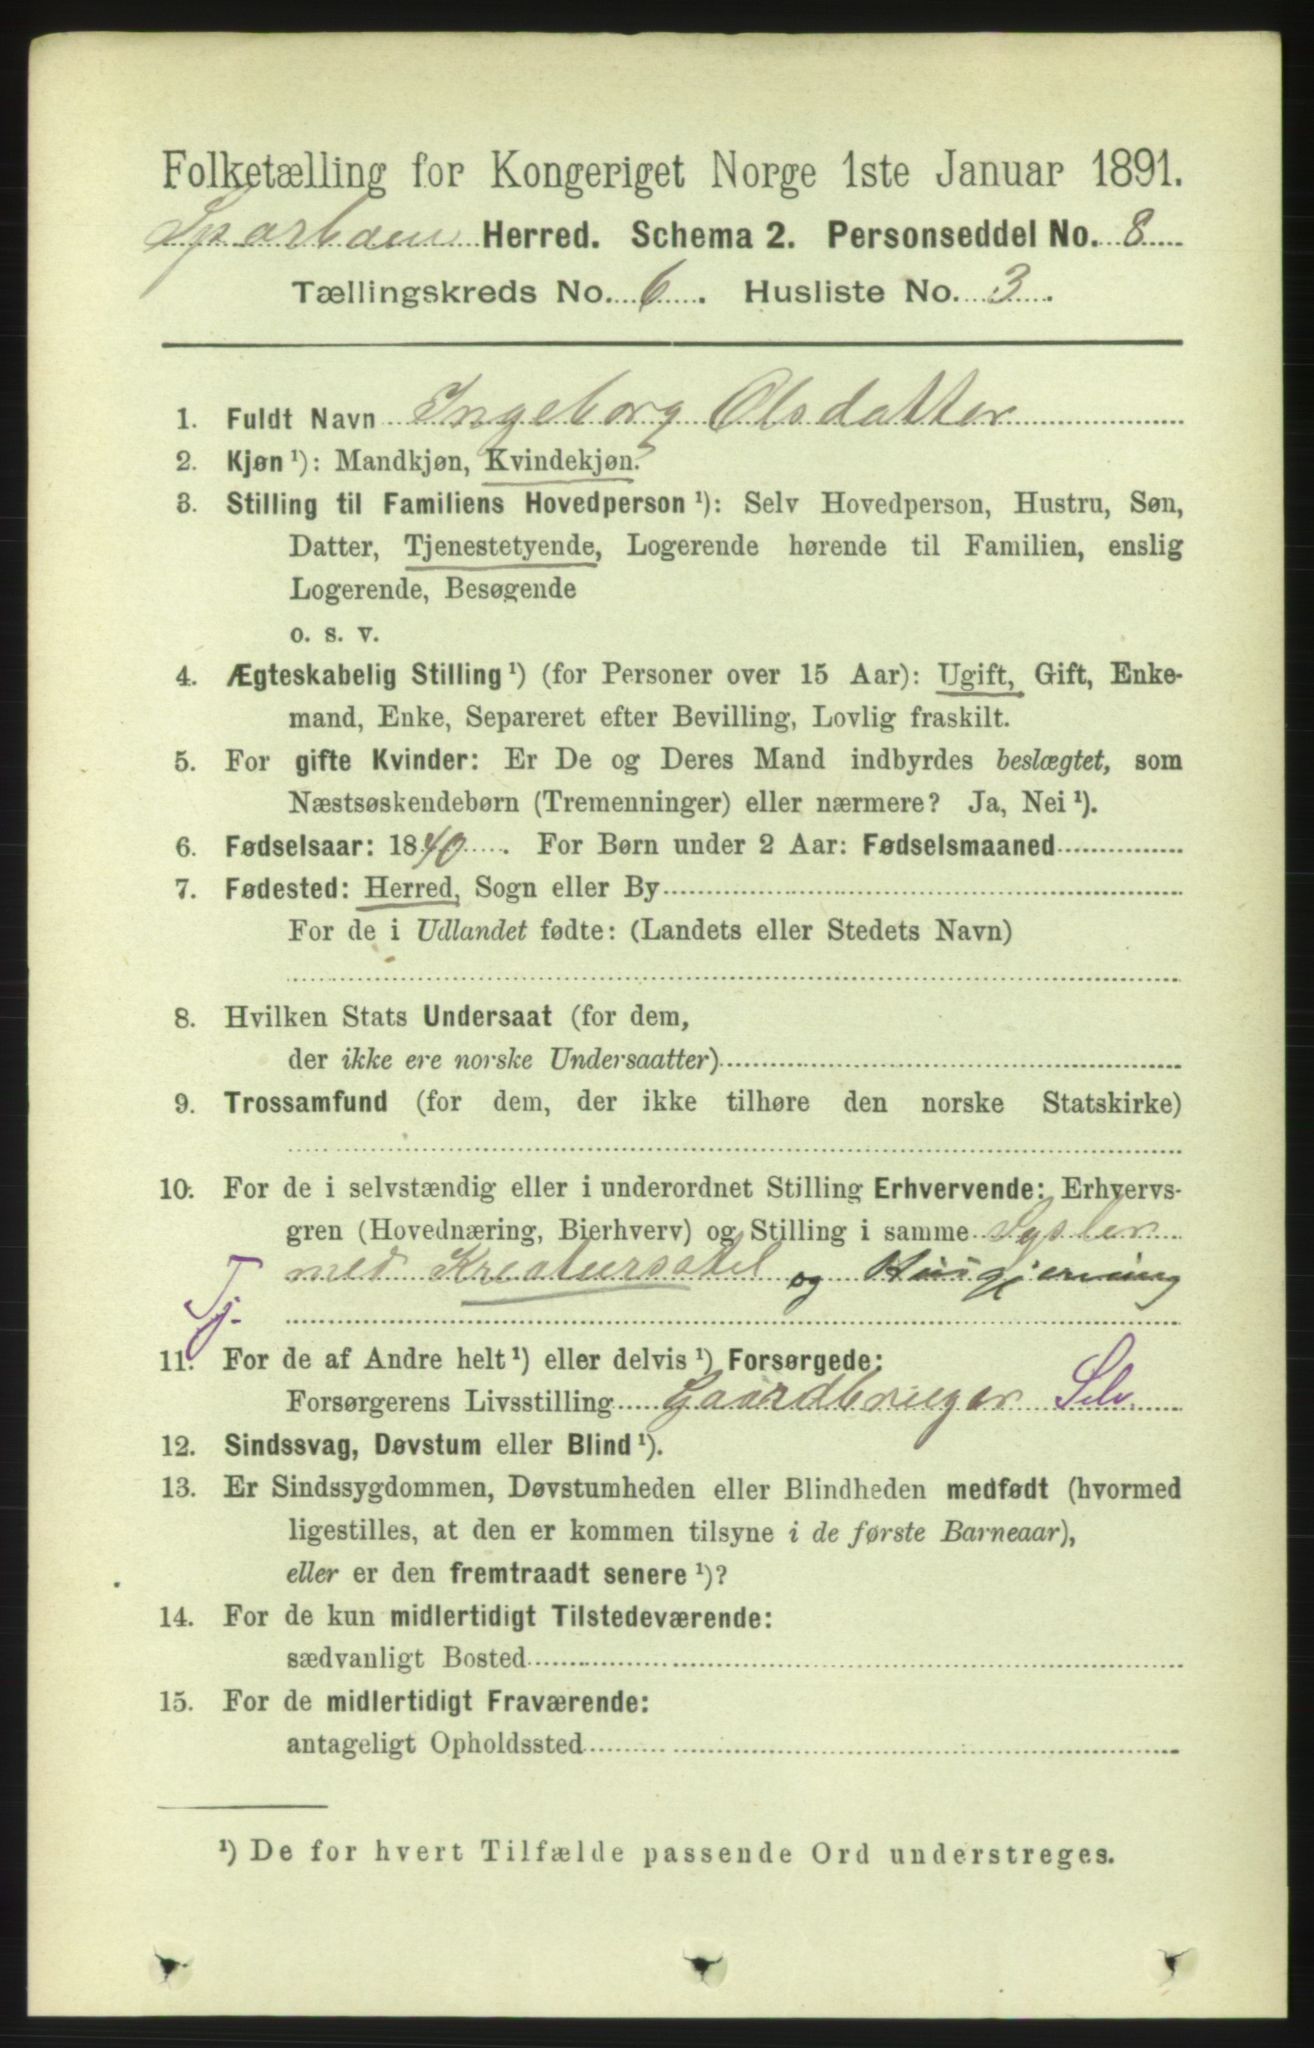 Folketælling for Kongeriget Norge 1ste Januar 1891.
Sparbuen Herred. Schema 2. Personseddel No. 8
Tællingskreds No. 6. Husliste No. 3.
1. Fuldt Navn Ingeborg Olsdatter
2. Kjøn ¹): Mandkjøn, Kvindekjøn.
3. Stilling til Familiens Hovedperson ¹): Selv Hovedperson, Hustru, Søn,
Datter, Tjenestetyende, Logerende hørende til Familien, enslig
Logerende, Besøgende
o. s. v.
4. Ægteskabelig Stilling ¹) (for Personer over 15 Aar): Ugift, Gift, Enke-
mand, Enke, Separeret efter Bevilling, Lovlig fraskilt.
5. For gifte Kvinder: Er De og Deres Mand indbyrdes beslægtet, som
Næstsøskendebørn (Tremenninger) eller nærmere? Ja, Nei ¹).
6. Fødselsaar: 1840. For Børn under 2 Aar: Fødselsmaaned
7. Fødested: Herred, Sogn eller By
For de i Udlandet fødte: (Landets eller Stedets Navn)
8. Hvilken Stats Undersaat (for dem,
der ikke ere norske Undersaatter)
9. Trossamfund (for dem, der ikke tilhøre den norske Statskirke)
10. For de i selvstændig eller i underordnet Stilling Erhvervende: Erhvervs-
gren (Hovednæring, Bierhverv) og Stilling i samme Sysler
med Kreaturstel og Husgjerning
Tj.
11. For de af Andre helt ¹) eller delvis ¹) Forsørgede:
Forsørgerens Livsstilling Gaardbruger Selv.
12. Sindssvag, Døvstum eller Blind ¹).
13. Er Sindssygdommen, Døvstumheden eller Blindheden medfødt (hvormed
ligestilles, at den er kommen tilsyne i de første Barneaar),
eller er den fremtraadt senere ¹)?
14. For de kun midlertidigt Tilstedeværende:
sædvanligt Bosted
15. For de midlertidigt Fraværende:
antageligt Opholdssted
¹) De for hvert Tilfælde passende Ord understreges.